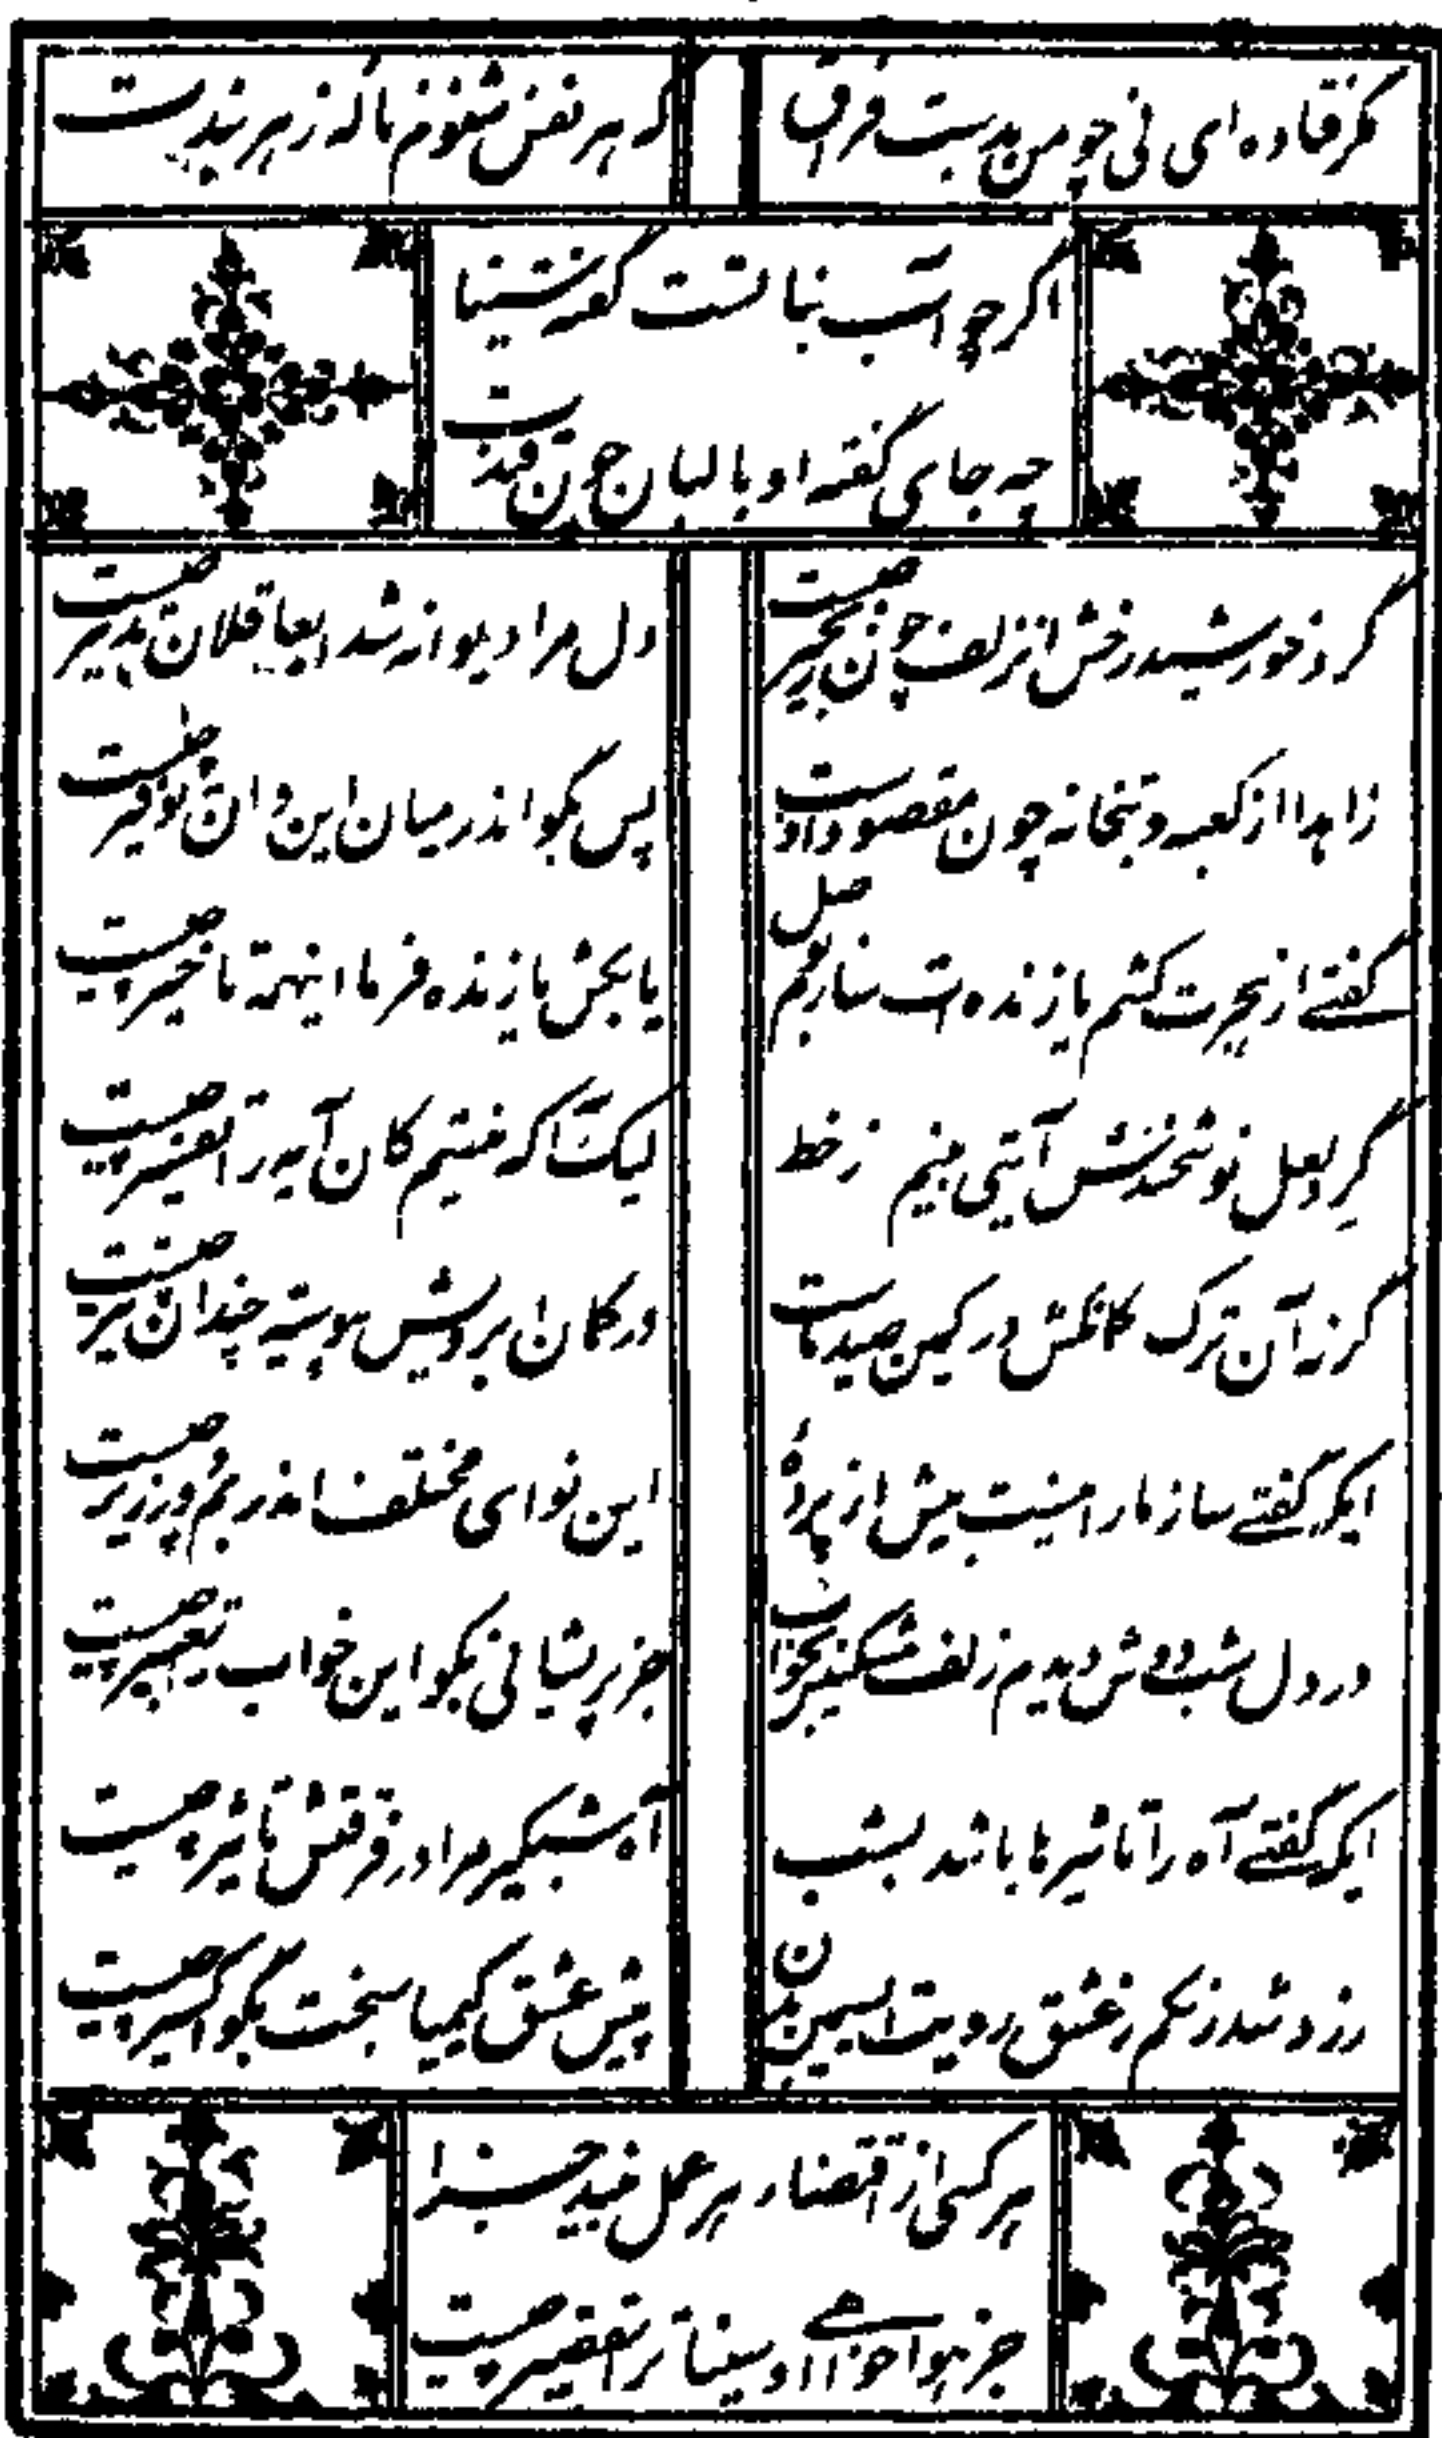 مگر فتاده‌ای نی چو من بدست فراق
که هر نفس شنوم ناله زهر بندت
اگر چو آب نباتست گفته سینا
چه جای گفته او با لبان چون قندت
گرد خورشید رخش از زلف چون زنجیر چیست
دل مرا دیوانه شد ایعاقلان تدبیر چیست
زاهدا از کعبه و بتخانه چون مقصود اوست
پس بگو اندر میان این و آن توفیر چیست
گفتے از هجرت کشم یا زنده‌ات سازم بوصل
یا بکش یا زنده فرما اینهمه تاخیر چیست
گرد لعل نوشخندش آیتی بینم ز خط
لیک آگه نیستم کان آیه را تفسیر چیست
گر نه آن ترک کمانکش در کمین صید ماست
در کمان ابرویش پیوسته چندان تیر چیست
ایکه گفتے ساز ما را نیست بیش از پردهٔ
این نوای مختلف اندر بم و زیر چیست
در دل شب دوش دیدم زلف مشکینش بخواب
جز پریشانی بگو این خواب تعبیر چیست
ایکه گفتے آه را تاثیرها باشد بشب
آه شبگیر مرا در فرقتش تاثیر چیست
زرد شد رنگم ز عشق رویت ایسیمین بدن
پیش عشق کیمیا سبخت بگو اکسیر چیست
هر کسی از اقتضاء هر عمل بیند جزا
جز هواخواهے او سینا ترا تقصیر چیست